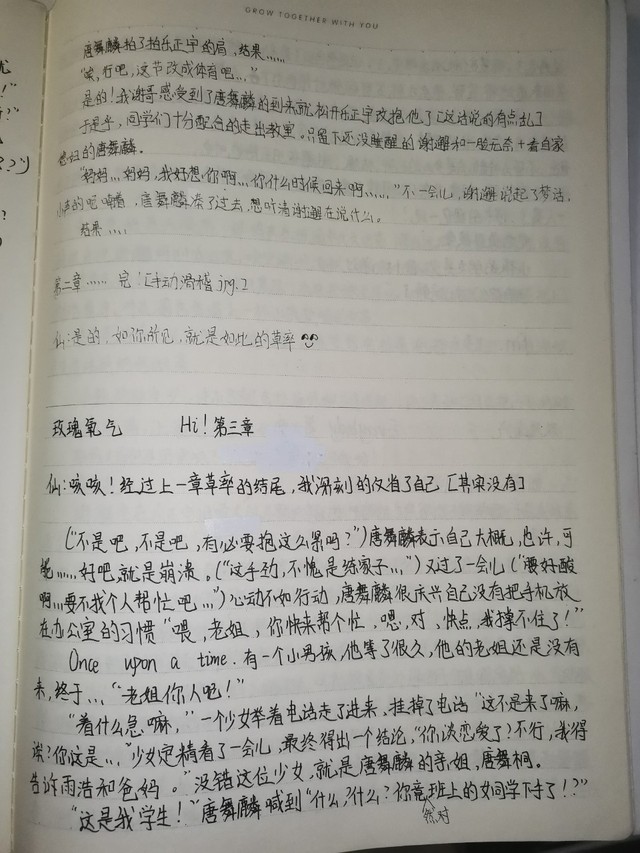 GROW TOGETHER WITH YOU
唐舞麟拍了拍乐正宇的肩，结果……
"唉，行吧，这节改成体育吧…"
是的！我谢哥感受到了唐舞麟的到来就松开乐正宇改抱他了[这话说的有点乱]
于是乎，同学们十分配合的走出教室。只留下还没睡醒的谢邂和一脸无奈+看自家
的唐舞麟。
"妈妈…妈妈，我好想你啊…你什么时候回来啊……"不一会儿，谢邂说起了梦话，
小声的呢喃着，唐舞麟凑了过去，想听清谢邂在说什么。
结果……
第二章……完 [手动滑稽jpg.]
仙:是的，如你所见，就是如此的草率
玫瑰氧气 Hi！第三章
仙:咳咳！经过上一章草率的结尾，我深刻的反省了自己[其实没有]
("不是吧，不是吧，有必要抱这么累吗？")唐舞麟表示自己大概，也许，可
能……好吧，就是崩溃。("这手劲，不愧是练家子…")又过了一会儿("腰好酸
啊…要不找个人帮忙吧…")心动不如行动，唐舞麟很庆兴自己没有把手机放
在办公室的习惯"喂，老姐，你快来帮个忙，嗯，对，快点，我撑不住了！"
Once upon a time. 有一个小男孩，他等了很久，他的老姐还是没有
来，终于…"老姐你人呢！"
"着什么急嘛，"一个少女举着电话走了进来，挂掉了电话"这不是来了嘛，
诶？你这是…"少女定精看了一会儿，最终得出一个结论，"你谈恋爱了？不行，我得
告诉雨浩和爸妈。"没错这位少女，就是唐舞麟的亲姐，唐舞桐。
"这是我学生！"唐舞麟喊到"什么？什么？你竟然对班上的女同学下手了！？"